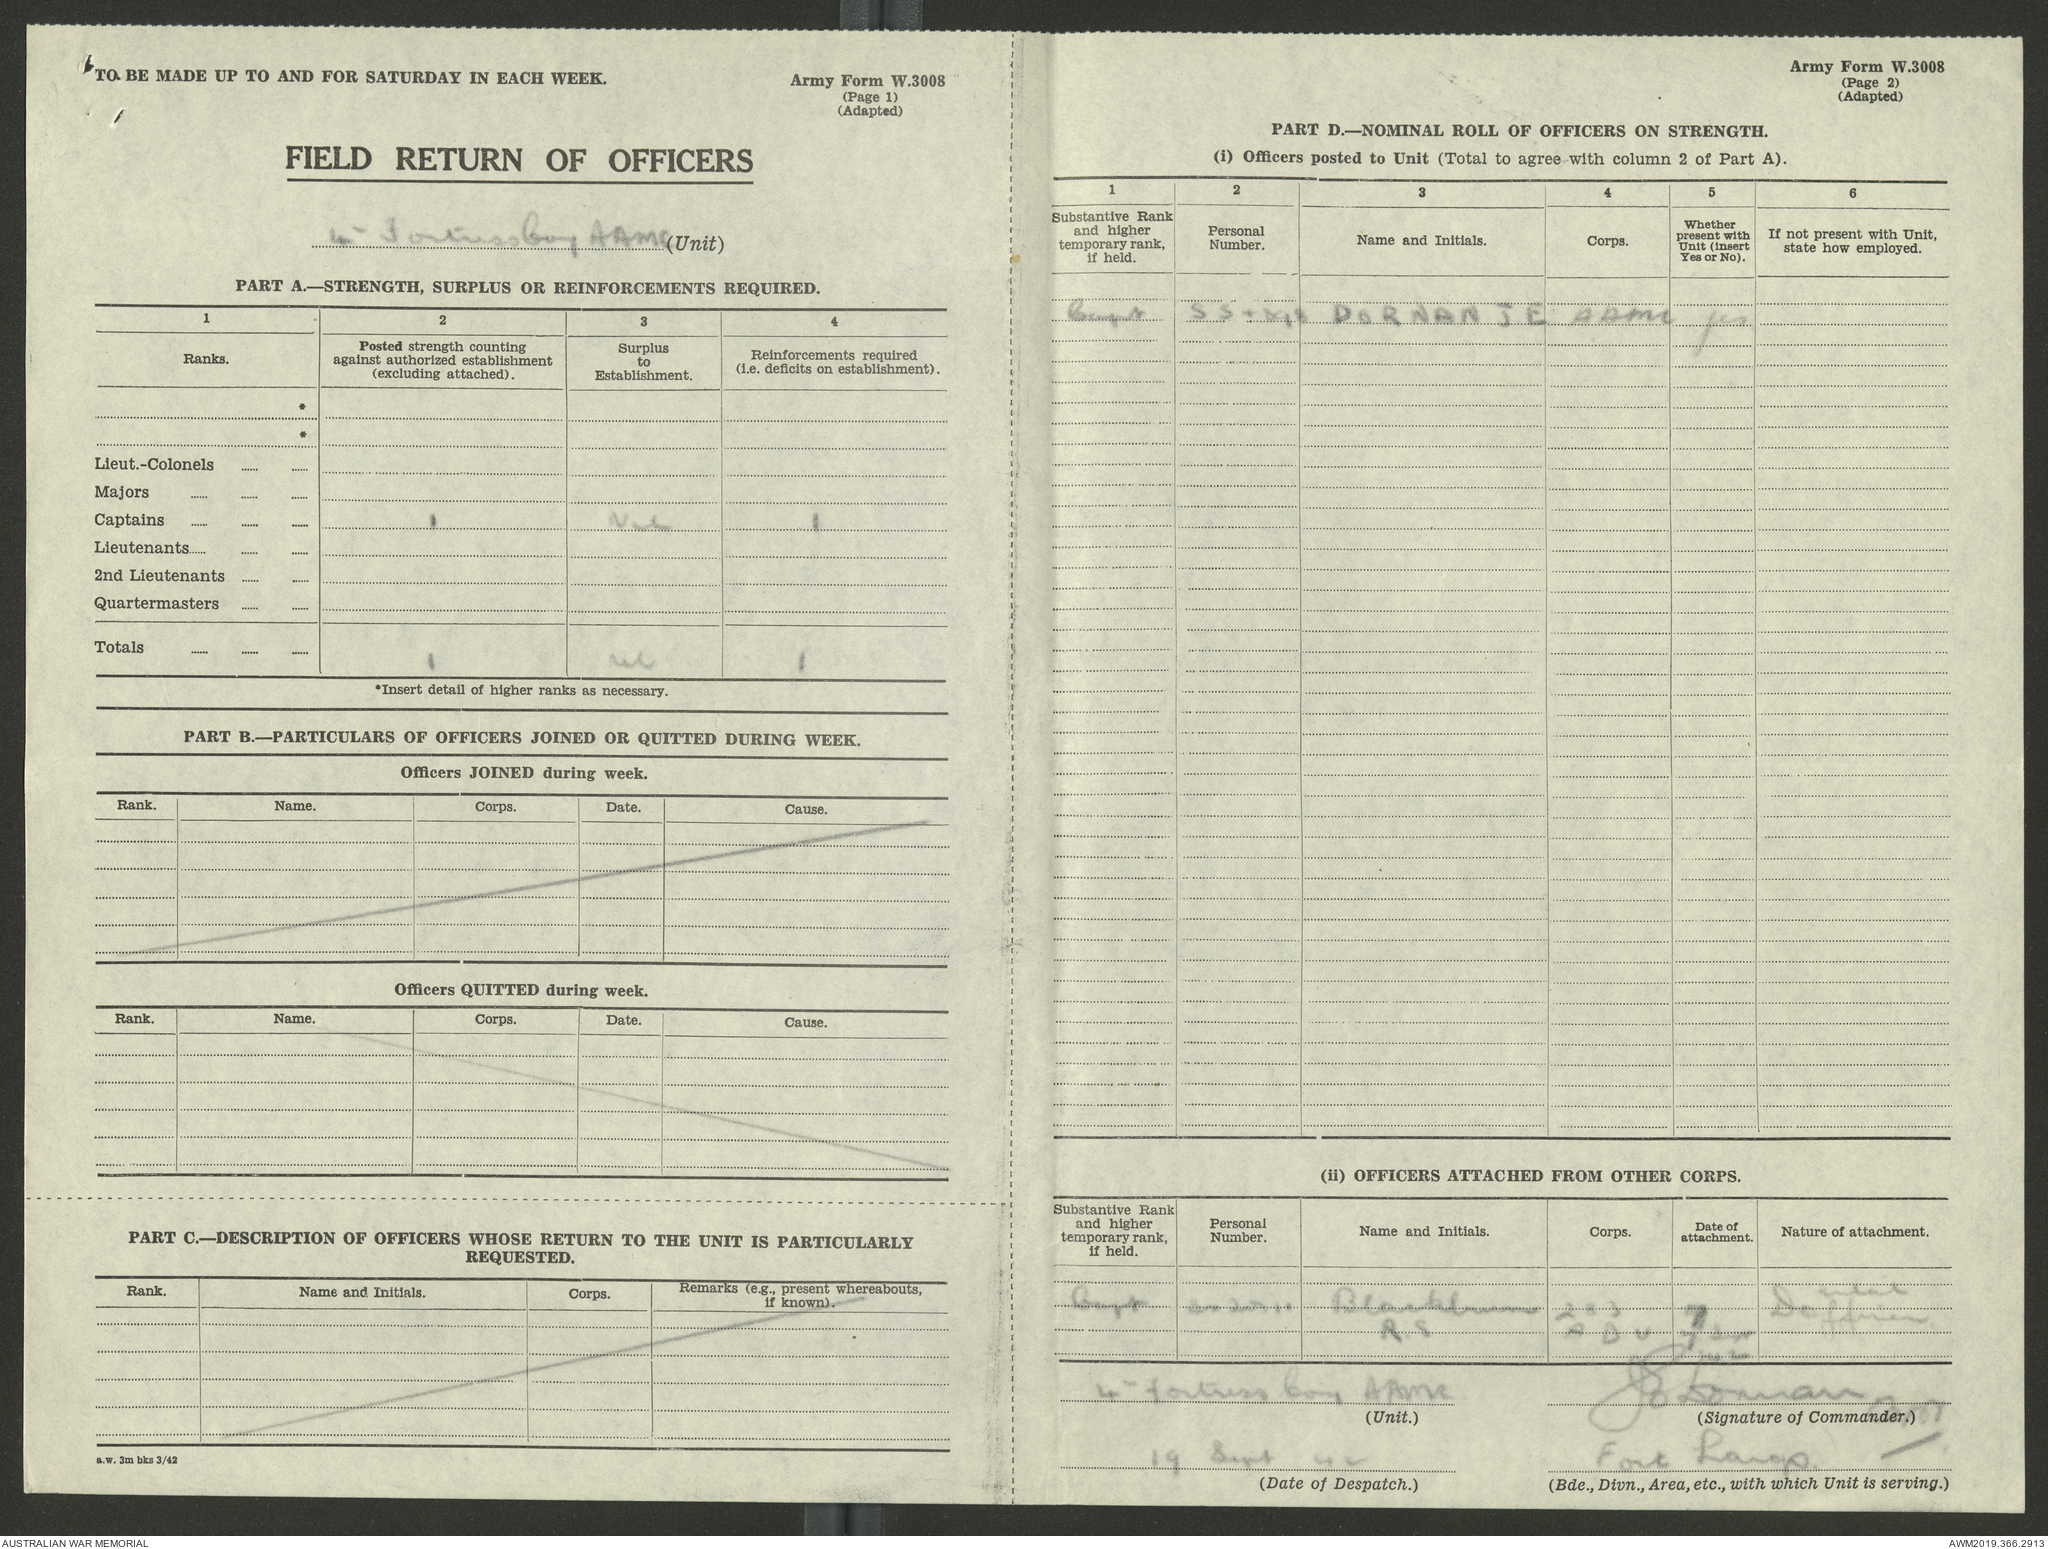 TO BE MADE UP TO AND FOR SATURDAY IN EACH WEEK.
Army Form W.3008
(Page 1)
(Adapted)
FIELD RETURN OF OFFICERS
4 Fortress Coy AAMC (Unit)
PART A.—STRENGTH, SURPLUS OR REINFORCEMENTS REQUIRED.
1 2 3 4
Ranks. Posted strength counting against authorized establishment (excluding attached). Surplus to Establishment. Reinforcements required (i.e. deficits on establishment).
*
*
Lieut.-Colonels
Majors
Captains 1 Nil 1
Lieutenants
2nd Lieutenants
Quartermasters
Totals 1 nil 1
*Insert detail of higher ranks as necessary.
PART B.—PARTICULARS OF OFFICERS JOINED OR QUITTED DURING WEEK.
Officers JOINED during week.
Rank. Name. Corps. Date. Cause.
Officers QUITTED during week.
Rank. Name. Corps. Date. Cause.
PART C.—DESCRIPTION OF OFFICERS WHOSE RETURN TO THE UNIT IS PARTICULARLY
REQUESTED.
Rank. Name and Initials. Corps. Remarks (e.g., present whereabouts, if known).
a.w. 3m bks 3/42
Army Form W.3008
(Page 2)
(Adapted)
PART D.—NOMINAL ROLL OF OFFICERS ON STRENGTH.
(i) Officers posted to Unit (Total to agree with column 2 of Part A).
1 2 3 4 5 6
Substantive Rank and higher temporary rank, if held. Personal Number. Name and Initials. Corps. Whether present with Unit (insert Yes or No). If not present with Unit, state how employed.
Capt DORNAN J E AAMC yes
(ii) OFFICERS ATTACHED FROM OTHER CORPS.
Substantive Rank and higher temporary rank, if held. Personal Number. Name and Initials. Corps. Date of attachment. Nature of attachment.
Capt Blackburn
R.S
4 Fortress Coy AAMC
(Unit.)
JEDornan Capt
(Signature of Commander.)
19 Sept 42
(Date of Despatch.)
Fort
(Bde., Divn., Area, etc., with which Unit is serving.)
AUSTRALIAN WAR MEMORIAL
AWM2019.366.2913